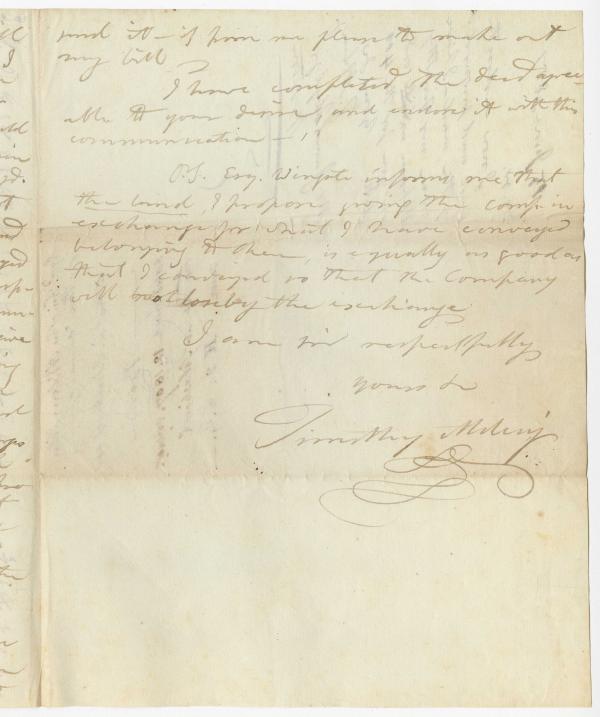 send it – if from me please to make out
my bill
I have completed the deed agree-
able to your desire, and enclose it with this
communication –
P.S. Esq. informs me that
the land, I propose giving the comp. in
exchange for what I have conveyed
belonging to them, is equally as good as
that I conveyed so that the Company
will not lose by the exchange
I am sir respectfully
yours &c
Timothy